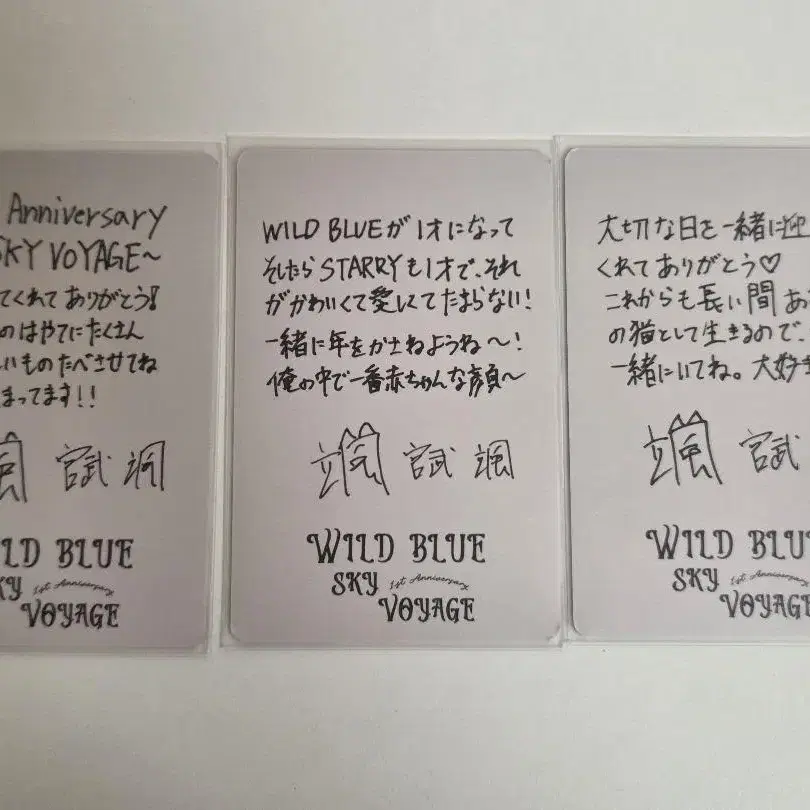 Anniversary
SKY VOYAGE〜
てくれて ありがとう!
のはやてにたくさん
いものたべさせてね
まってます!!
LD BLUE
KY 1st Anniversary
VOYAGE
WILD BLUEが1才になって
そしたらSTARRYも1才で、それ
がかわいくて愛しくてたまらない!
一緒に年をかさねようね〜!
俺の中で一番赤ちゃんな顔〜
WILD BLUE
SKY 1st Anniversary
VOYAGE
大切な日を一緒に迎
くれてありがとう♡
これからも長い間あ
の猫として生きるので、
一緒にいてね。大好き
WILD BLU
SKY 1st Anniversary
VOYAGE